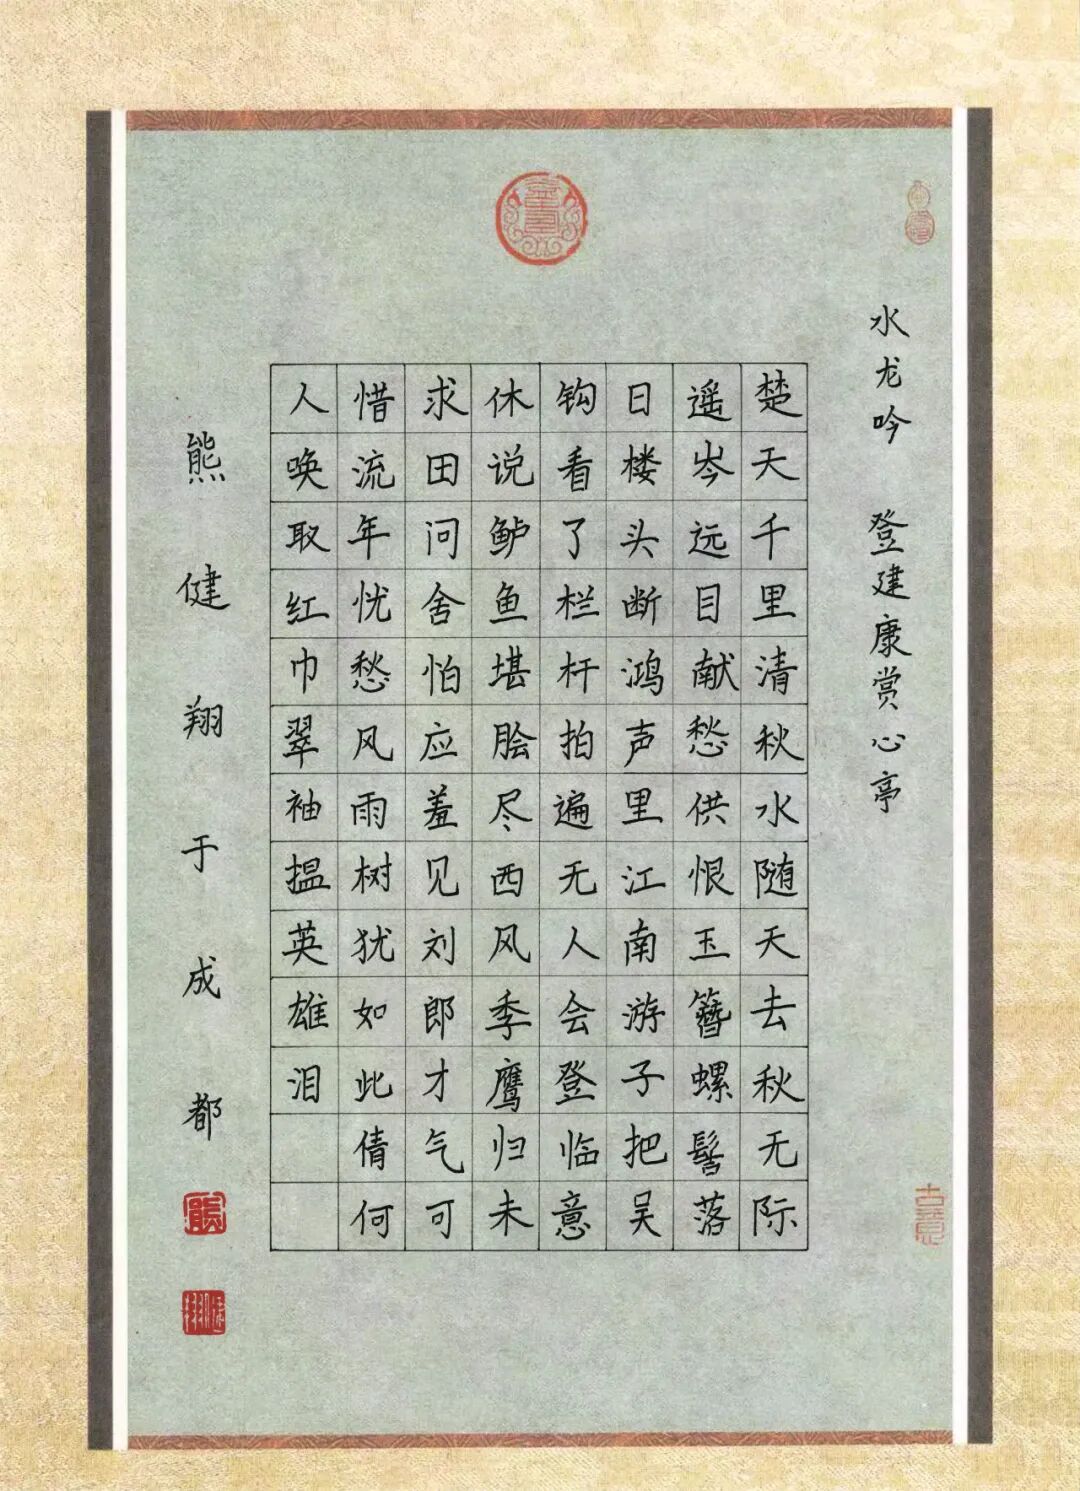 水龙吟 登建康赏心亭
楚天千里清秋水随天去秋无际
遥岑远目献愁供恨玉簪螺髻落
日楼头断鸿声里江南游子把吴
钩看了栏杆拍遍无人会登临意
休说鲈鱼堪脍尽西风季鹰归未
求田问舍怕应羞见刘郎才气可
惜流年忧愁风雨树犹如此倩何
人唤取红巾翠袖揾英雄泪
熊健翔于成都